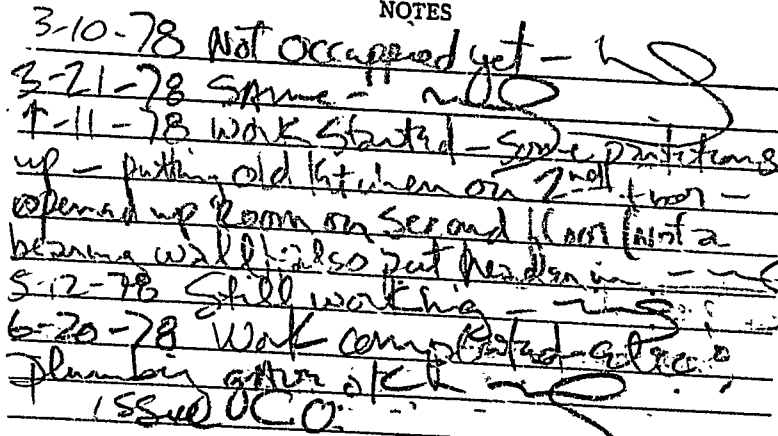 NOTES
3-10-78 Not Occappied yet -
3-21-78 SAme -
4-11-78 Work Started - Some partitions
up - putting old kitchen on 2nd floor -
opened up Room on Second floor (not a
bearing wall) also put header in -
5-12-78 Still working -
6-20-78 Work completed
Plumbing gave OK
issue CO.